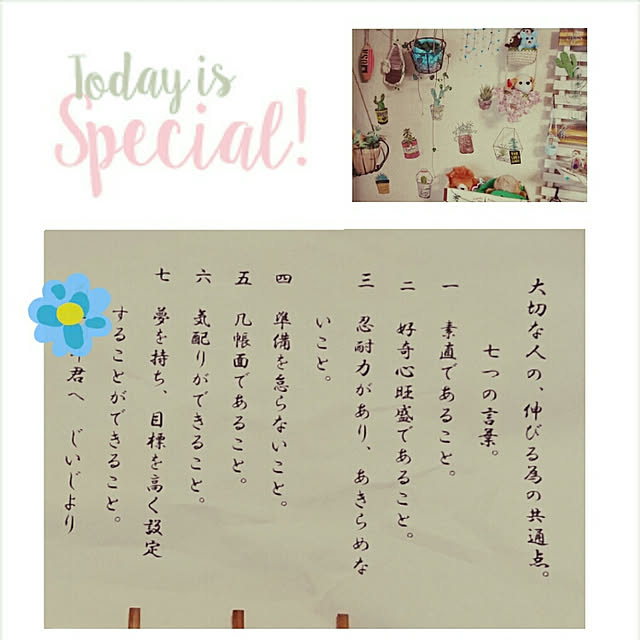 Today is
Special!
大切な人の、伸びる為の共通点。
七つの言葉。
一 素直であること。
二 好奇心旺盛であること。
三 忍耐力があり、あきらめな
いこと。
四 準備を怠らないこと。
五 几帳面であること。
六 気配りができること。
七 夢を持ち、目標を高く設定
することができること。
君へ じいじより